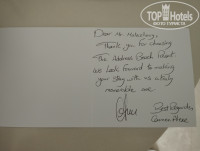 TOP Hotels
Dear Mr.
Thank you for choosing
The Address Beach Resort.
We look forward to making
your stay with us
memorable one
Best Regards